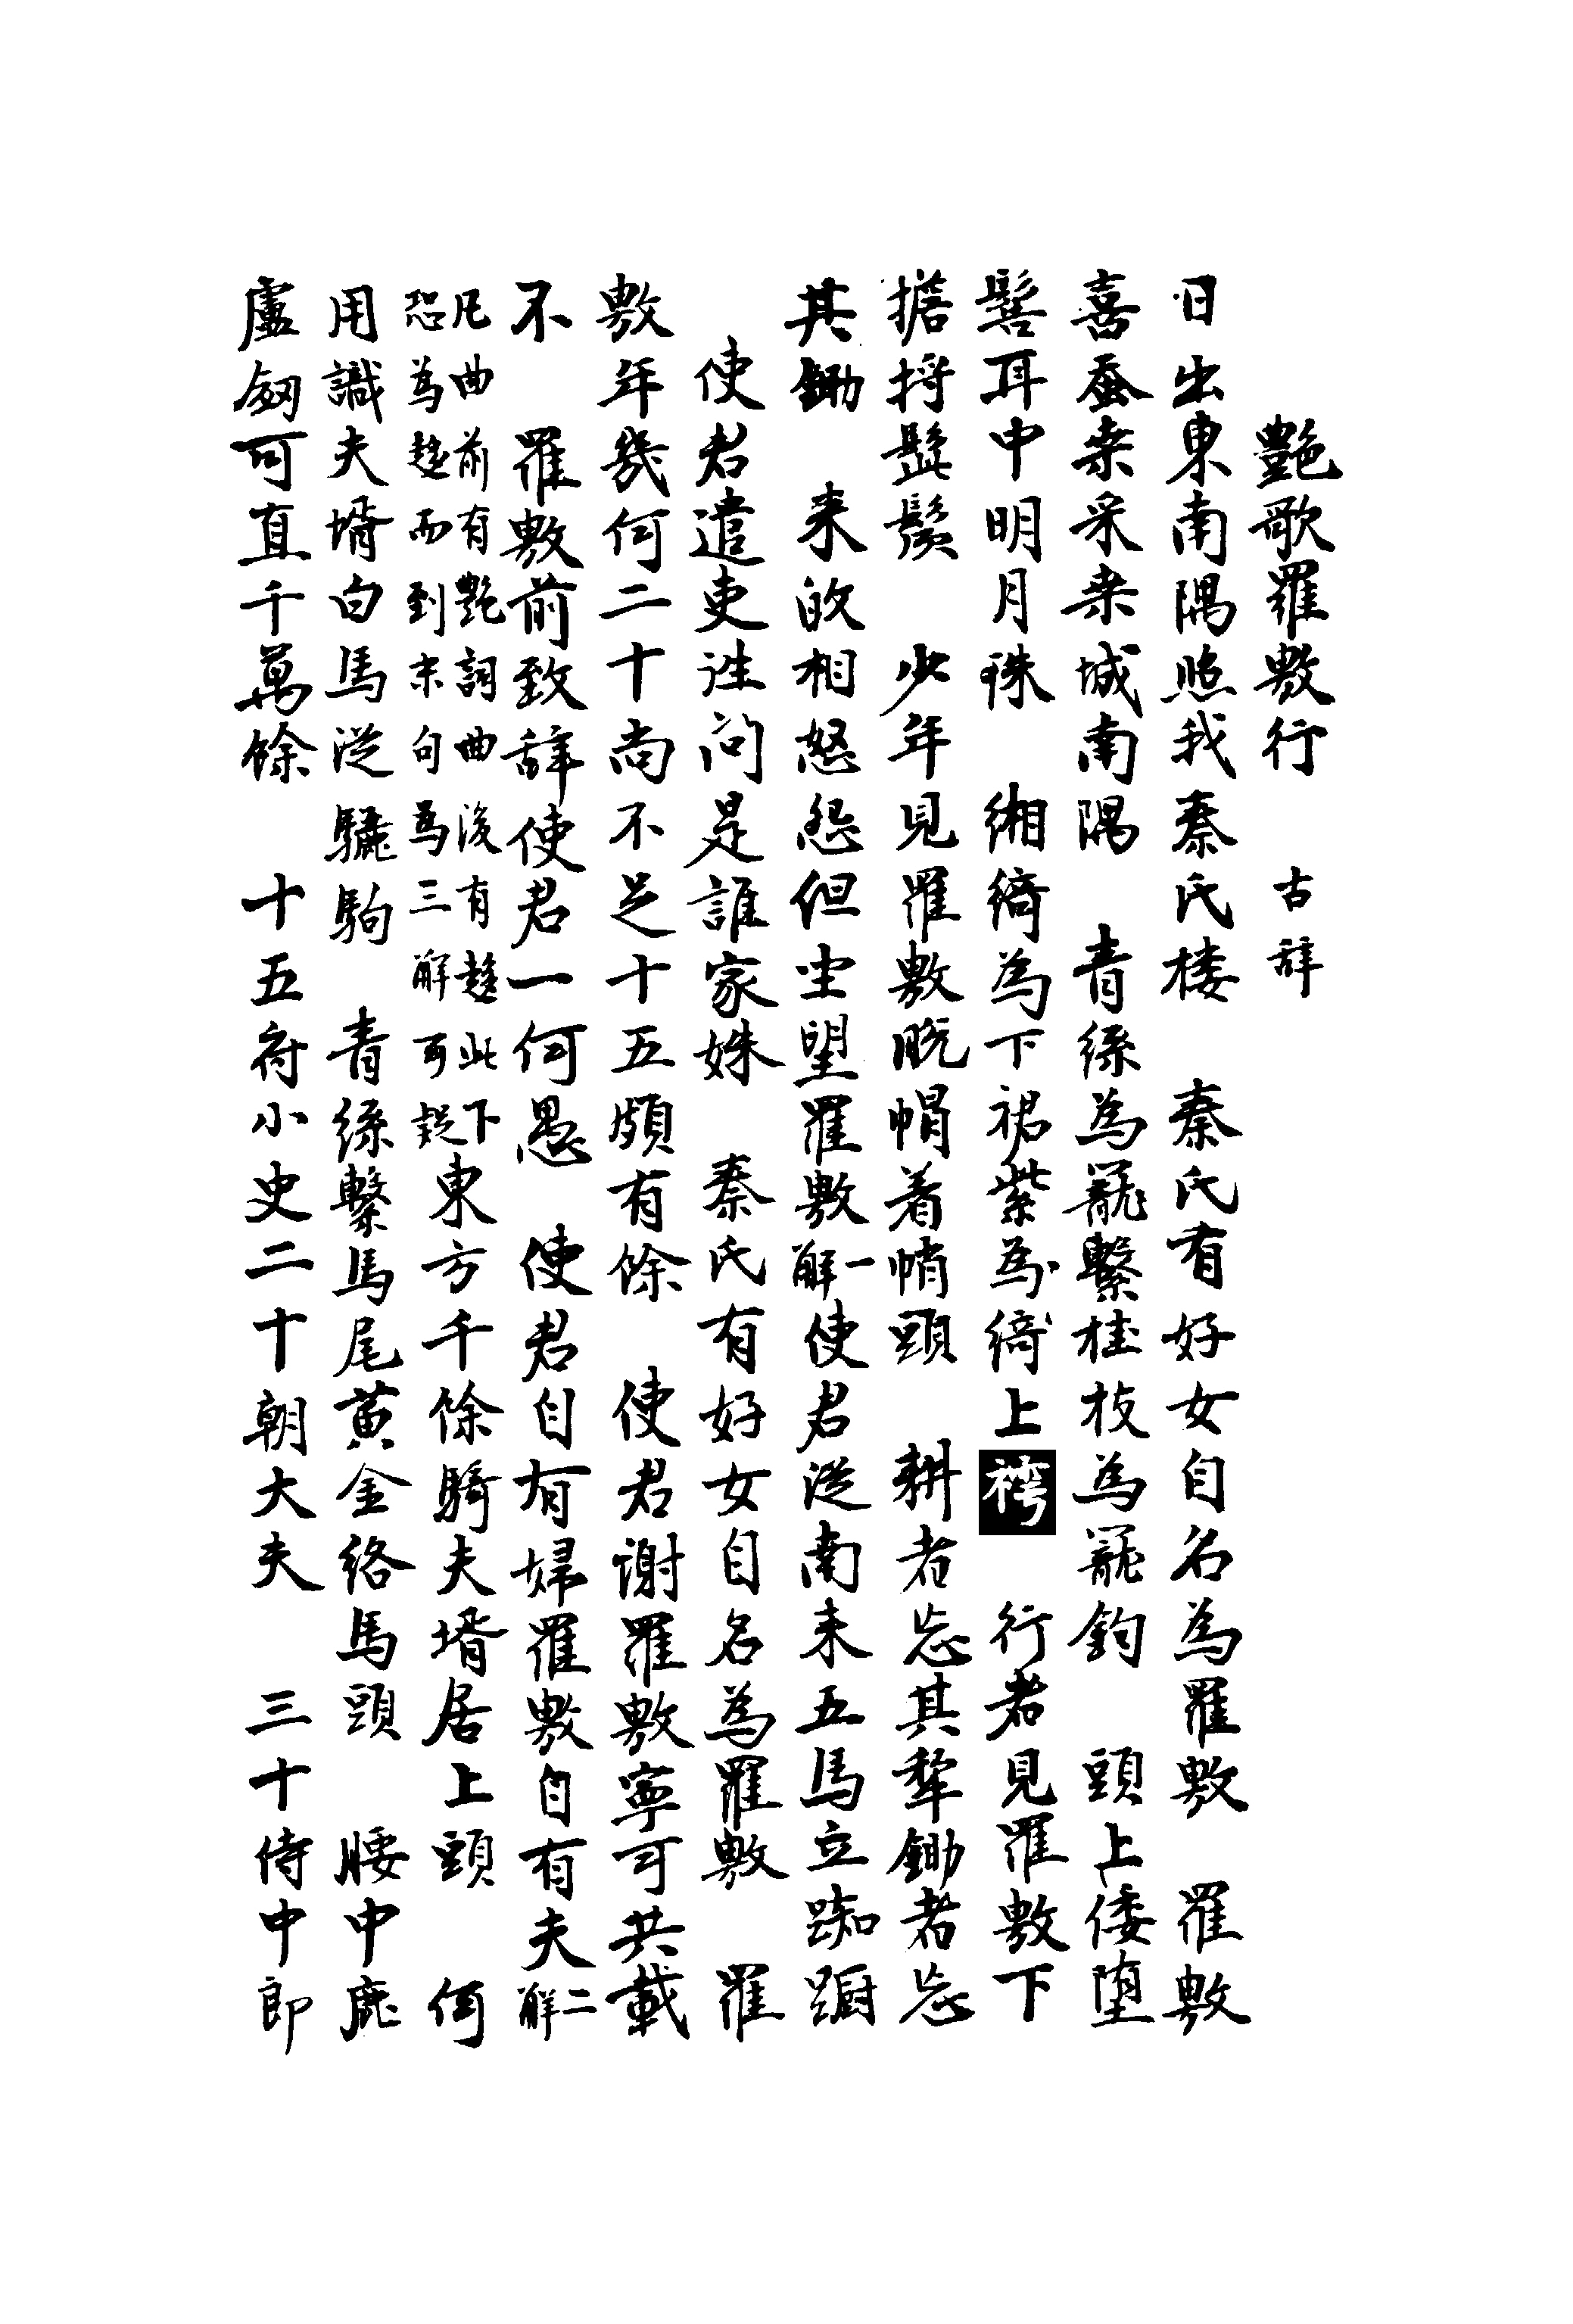 艶歌羅敷行 古辞
日出東南隅照我秦氏楼 秦氏有好女自名為羅敷 羅敷
喜蚕桒采桒城南隅 青絲為籠繫桂枝為籠鈎 頭上倭堕
髻耳中明月珠 緗綺為下裙紫為綺上 行者見羅敷下
擔捋髭鬚 少年見羅敷脱帽着帩頭 耕者忘其犂鋤者忘
其鋤 来皈相怒怨但坐望羅敷一解使君従南来五馬立踟蹰
使君遣吏往問是誰家姝 秦氏有好女自名為羅敷 羅
敷年幾何二十尚不足十五頗有餘 使君谢羅敷寧可共載
不 羅敷前致辞使君一何愚 使君自有婦羅敷自有夫二解
凡曲前有艶詞曲後有趍此下
恐為趍而到末句為三解可疑
東方千餘騎夫壻居上頭 何
用識夫壻白馬従驪駒 青絲繫馬尾黄金絡馬頭 腰中鹿
盧劔可直千萬餘 十五府小史二十朝大夫 三十侍中郎